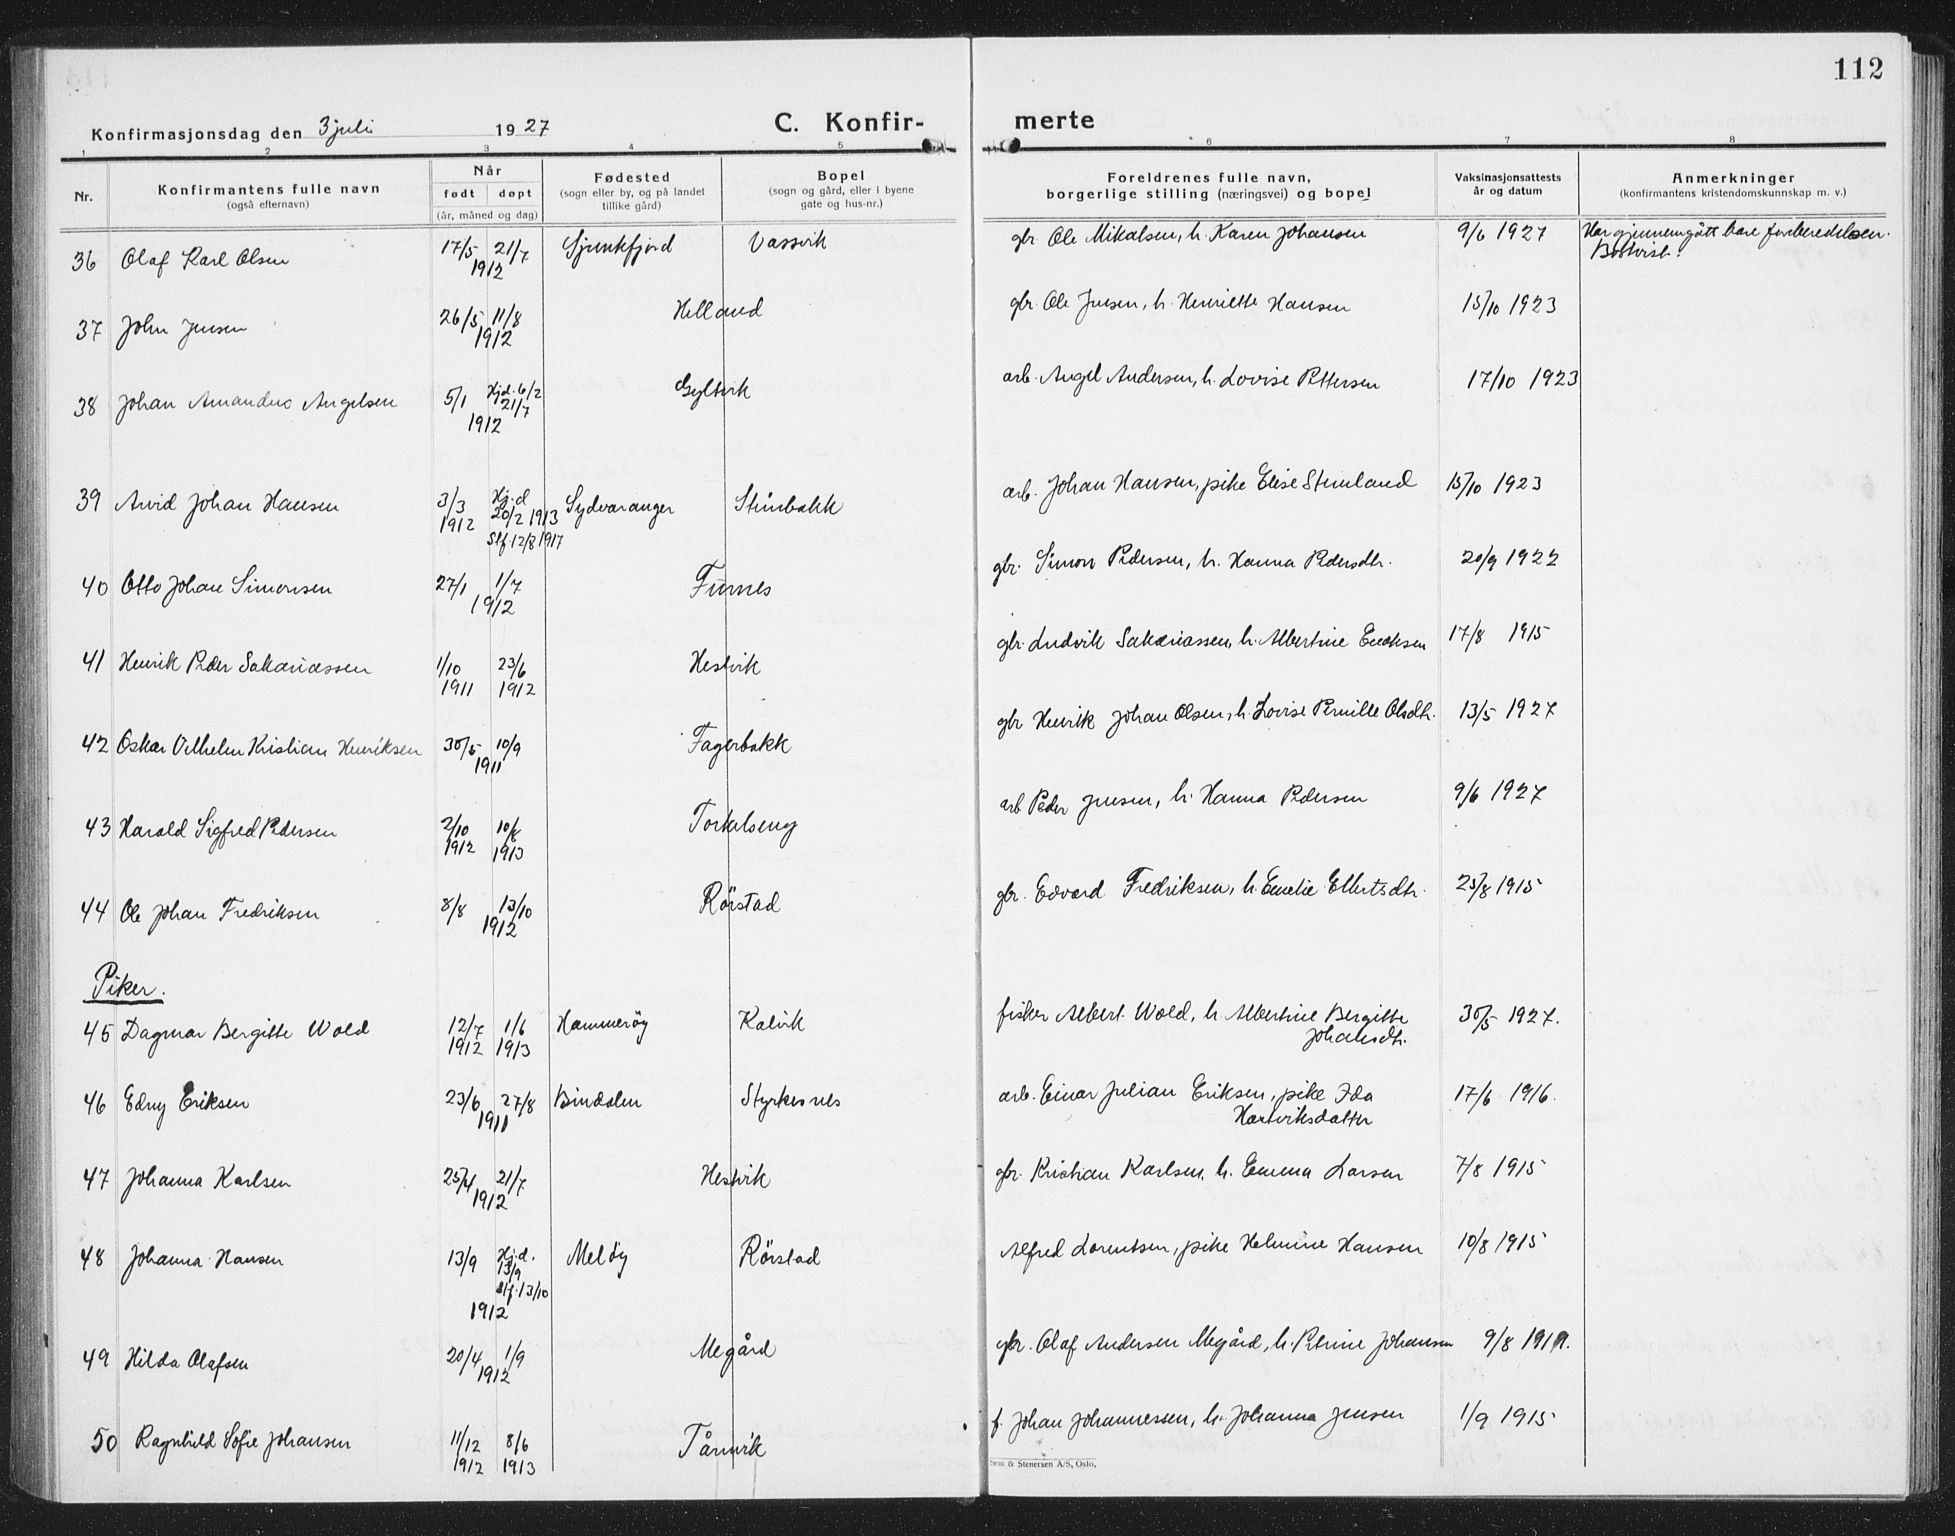 112
Konfirmasjonsdag den 3 juli 1927
C. Konfir-
merte
1 2 3 4 5 6 7 8
Nr.
Konfirmantens fulle navn
(også efternavn)
Når
født døpt
(år, måned og dag)
Fødested
(sogn eller by, og på landet
tillike gård)
Bopel
(sogn og gård, eller i byene
gate og hus-nr.)
Foreldrenes fulle navn,
borgerlige stilling (næringsvei) og bopel
Vaksinasjonsattests
år og datum
Anmerkninger
(konfirmantens kristendomskunnskap m. v.)
36 Olaf Karl Olsen 17/5 21/7 1912 Sjunkfjord Vassvik gbr. Ole Mikalsen, h. Karen Johansen 9/6 1927 Har gjennemgått bare forberedelsen.
37 John Jensen 26/5 11/8 1912 Helland gbr. Ole Jensen, h. Henriette Hansen 15/10 1923
38 Johan Amandus Angelsen 5/1 Hjd. 6/2 21/7 1912 Gyltvik arb. Angel Andersen, h. Lovise Pettersen 17/10 1923
39 Arvid Johan Hansen 3/3 1912 Hj.d 20/2 1913 Stf. 12/8 1917 Sydvaranger Stenbakk arb. Johan Hansen, pike Elise Stenland 15/10 1923
40 Otto Johan Simonsen 27/1 1/7 1912 Furnes gbr. Simon Pedersen, h. Hanna Pedersdtr. 20/9 1922
41 Henrik Peder Sakariassen 1/10 1911 23/6 1912 Hestvik gbr. Ludvik Sakariassen, h. Albertine Eriksen 17/8 1915
42 Oskar Vilhelm Kristian Henriksen 30/5 10/9 1911 Fagerbakk gbr Henrik Johan Olsen, h. Lovise Pernille Olsdtr. 13/5 1927
43 Harald Sigfred Pedersen 2/10 1912 10/8 1913 Torkelseng arb Peder Jensen, h. Hanna Pedersen 9/6 1927
44 Ole Johan Fredriksen 8/8 13/10 1912 Rörstad gbr. Edvard Fredriksen, h. Emelie Ellertsdtr. 25/8 1915
Piker.
45 Dagmar Bergitte Wold 12/7 1912 1/6 1913 Hammeröy Kalvik fisker Albert Wold, h. Albertine Bergitte Johansdtr. 30/5 1927.
46 Edny Eriksen 23/6 27/8 1911 Bindalen Styrkesnes arb. Einar Julian Eriksen, pike Ida Hartviksdatter 17/6 1916.
47 Johanna Karlsen 25/4 21/7 1912 Hestvik gbr. Kristian Karlsen, h. Emma Larsen 7/8 1915
48 Johanna Hansen 13/9 Hj.d. 13/9 Stf. 13/10 1912 Melöy Rörstad Alfred Lorentsen, pike Helmine Hansen 10/8 1915
49 Hilda Olafsen 20/4 1/9 1912 Megård gbr. Olaf Andersen Megård, h. Petrine Johansen 9/8 1919.
50 Ragnhild Sofie Johansen 11/12 1912 8/6 1913 Tårnvik f. Johan Johannessen, h. Johanna Jensen 1/9 1915
Sem & Stenersen A/S, Oslo.